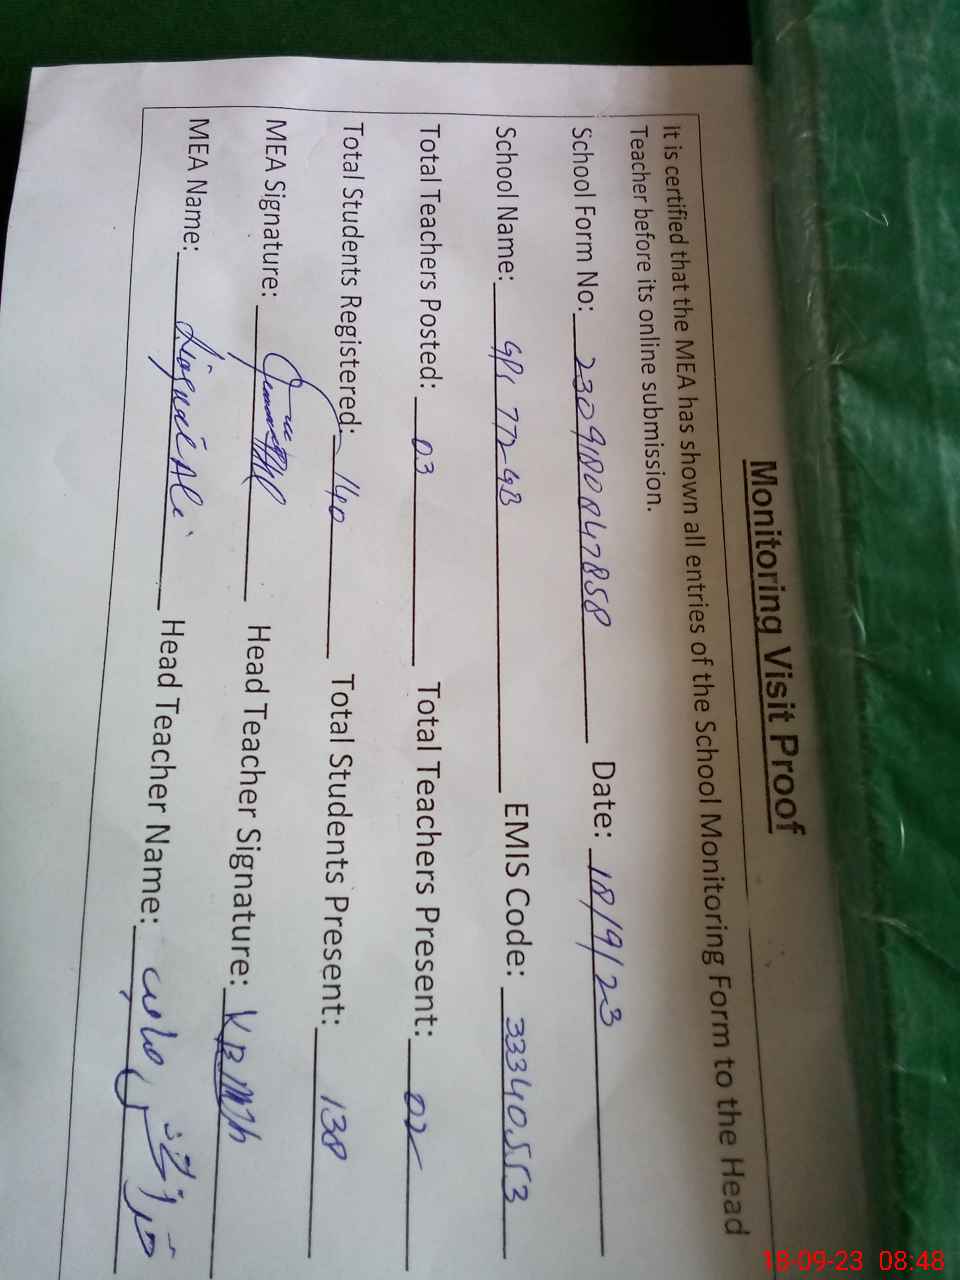 Monitoring Visit Proof
It is certified that the MEA has shown all entries of the School Monitoring Form to the Head
Teacher before its online submission.
School Form No: 2309180847858 Date: 18/9/23
School Name: GPS 772 GB EMIS Code: 33340553
Total Teachers Posted: 03 Total Teachers Present: 02
Total Students Registered: 140 Total Students Present: 138
MEA Signature: Head Teacher Signature:
MEA Name: Liaquat Ali Head Teacher Name:
18-09-23 08:48